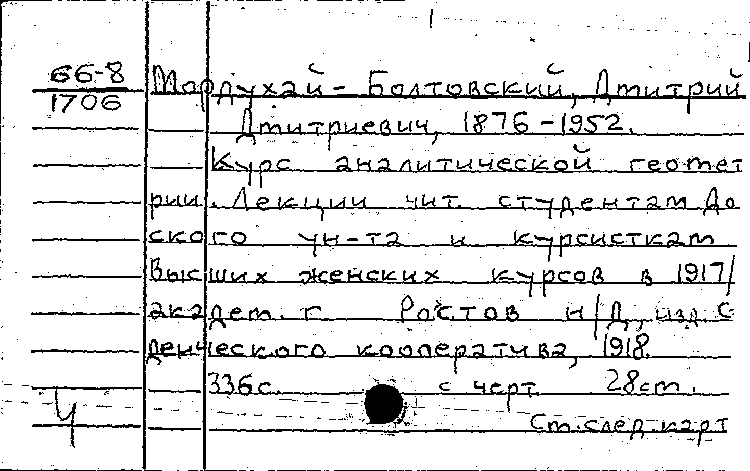 66-8
1706
Мордухай-Болтовский, Дмитрий
Дмитриевич, 1876-1952.
Курс аналитической геомет
рии. Лекции чит. студентам До
ского ун-та и курсисткам
Высших женских курсов в 1917/
академ. г. Ростов н/Д, изд. С
денческого кооператива, 1918.
336с. с черт. 28см.
Ч
См.след.карт